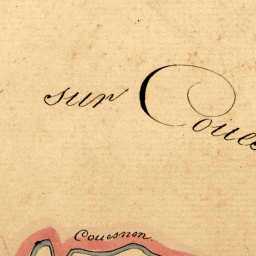 sur Coue
Couesnon